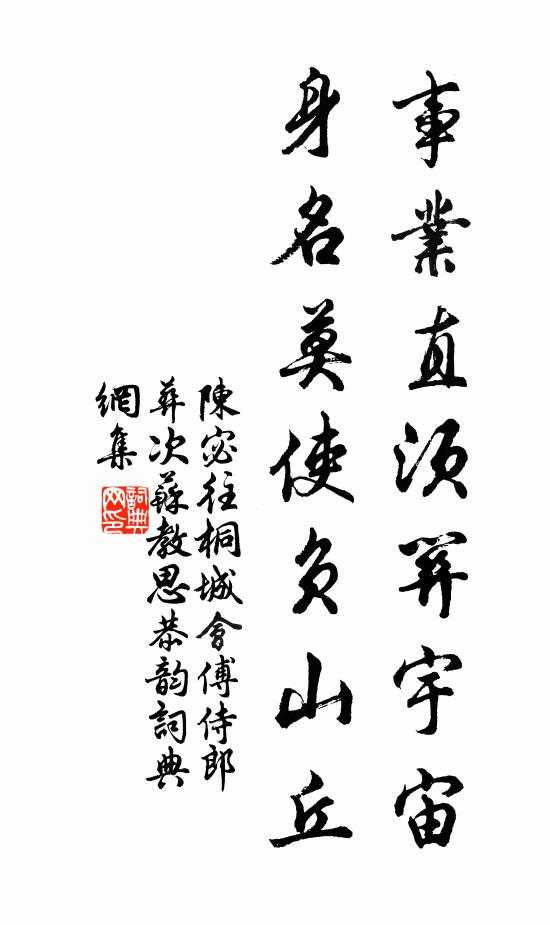 事業直須關宇宙
身名莫使負山丘
陳宓往桐城會傅侍郎
葬次蘇教思恭韵詞典
網集
詞典
网印